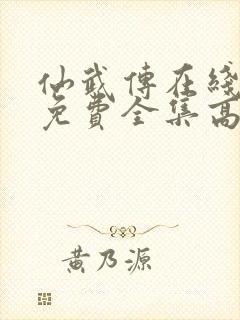 仙武傳在綫
免費全集高
黃乃源